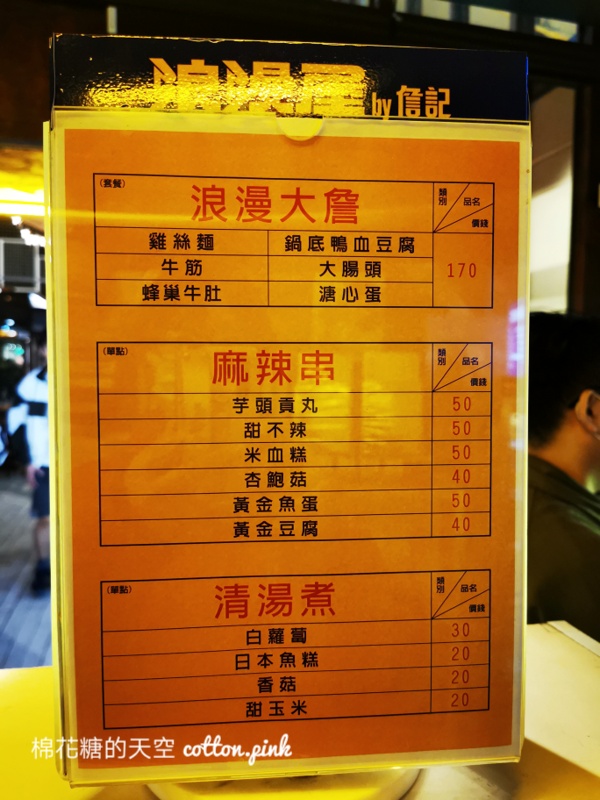 浪漫屋 by 詹記
(套餐) 浪漫大詹 類別 品名 價錢
雞絲麵 鍋底鴨血豆腐
牛筋 大腸頭 170
蜂巢牛肚 溏心蛋
(單點) 麻辣串 類別 品名 價錢
芋頭貢丸 50
甜不辣 50
米血糕 50
杏鮑菇 40
黃金魚蛋 50
黃金豆腐 40
(單點) 清湯煮 類別 品名 價錢
白蘿蔔 30
日本魚糕 20
香菇 20
甜玉米 20
棉花糖的天空 cotton.pink